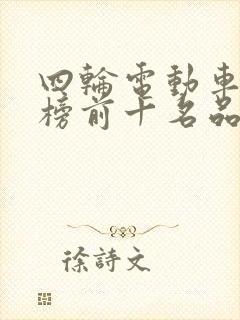 四輪電動車
榜前十名品
徐詩文